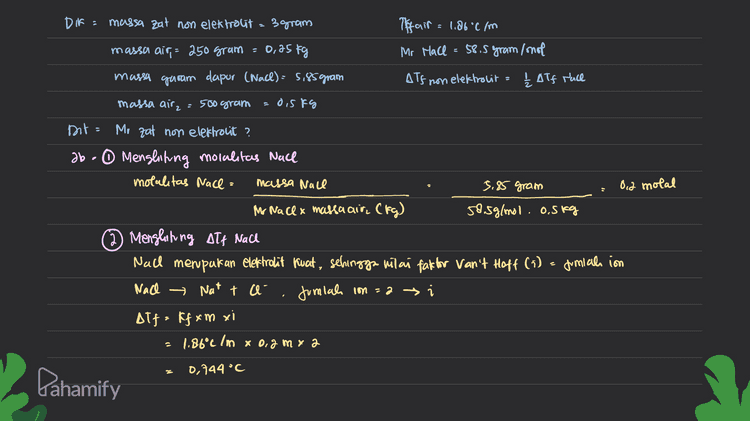 Dik = massa zat non elektrolit = 3 gram
massa air₁ = 250 gram = 0,25 kg
massa garam dapur (NaCl) = 5,85 gram
massa air₂ = 500 gram = 0,5 kg
Kf air = 1.86°C/m
Mr NaCl = 58.5 gram/mol
ΔTf non elektrolit = 1/2 ΔTf NaCl
Dit = Mr zat non elektrolit ?
Jb = ① Menghitung molalitas NaCl
molalitas NaCl = massa NaCl / Mr NaCl x massa air₂ (kg) = 5,85 gram / 58.5 g/mol . 0,5 kg = 0,2 molal
② Menghitung ΔTf NaCl
NaCl merupakan elektrolit kuat, sehingga nilai faktor Van't Hoff (i) = jumlah ion
NaCl → Na⁺ + Cl⁻ , jumlah ion = 2 → i
ΔTf = Kf x m x i
= 1.86°C/m x 0,2 m x 2
= 0,744 °C
Pahamify